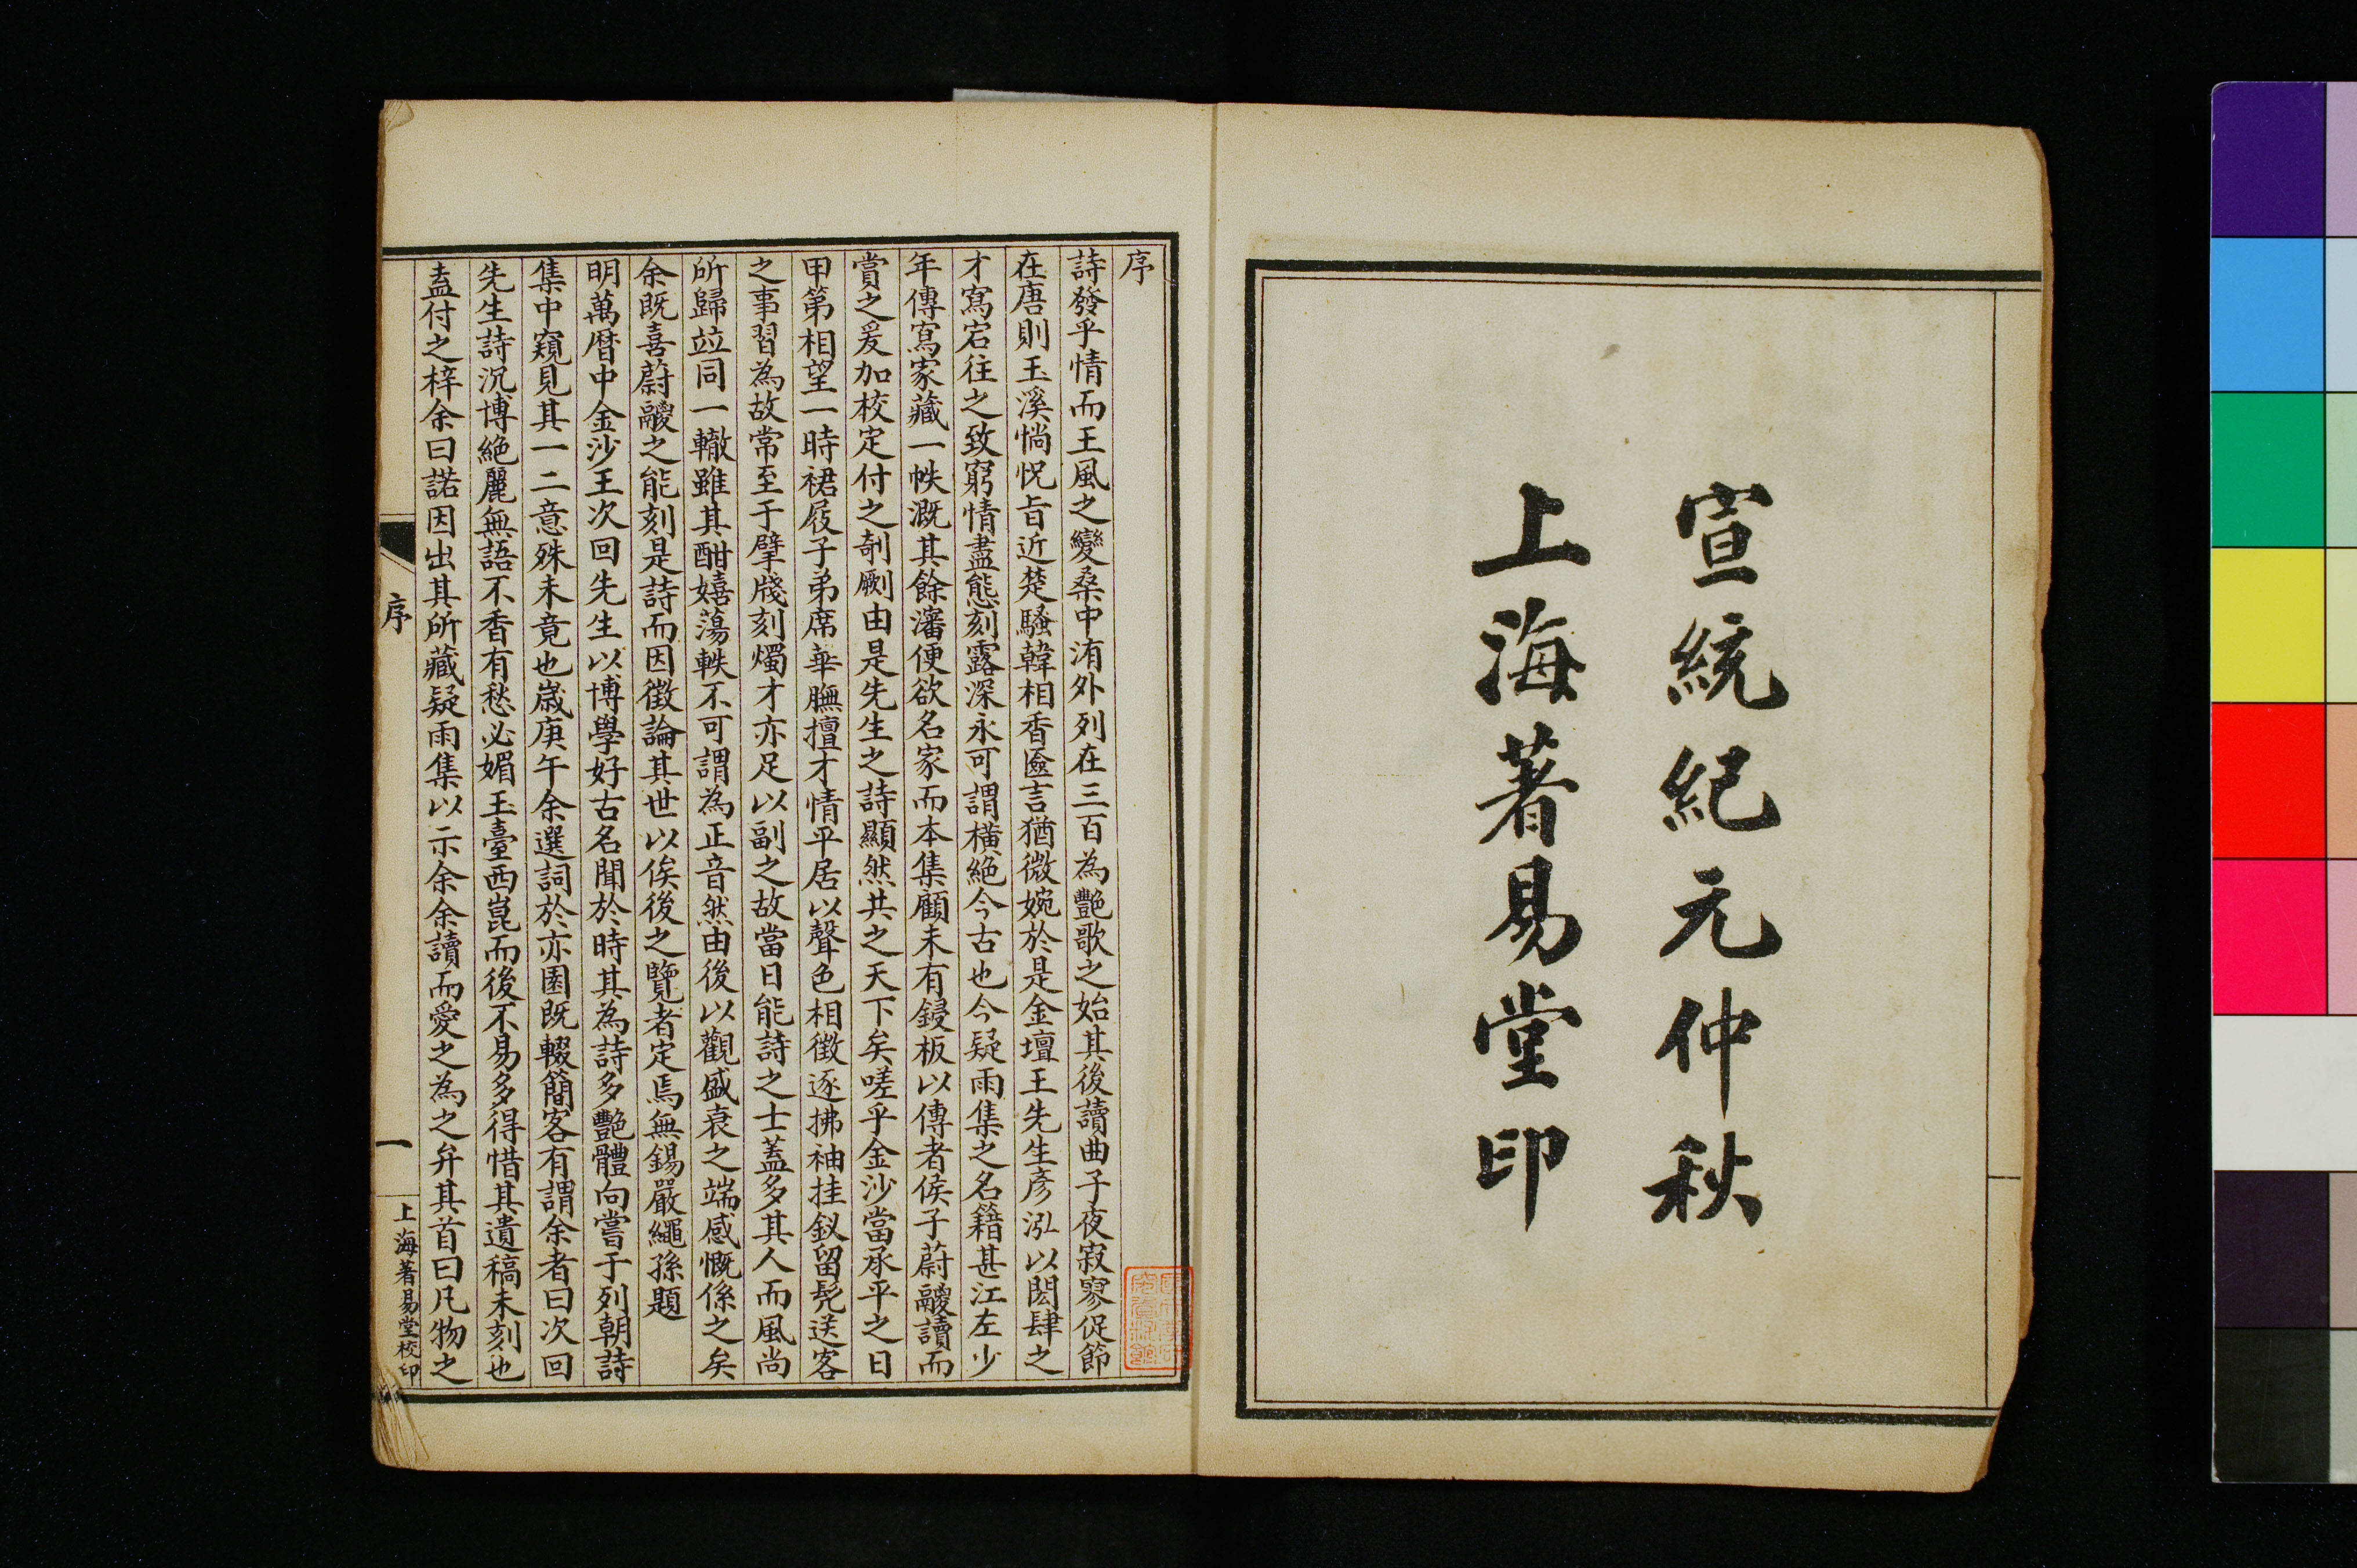 宣統紀元仲秋
上海著易堂印
序
詩發乎情而王風之變桑中洧外列在三百為艷歌之始其後讀曲子夜寂寥促節
在唐則玉溪惝怳旨近楚騷韓相香匳言猶微婉於是金壇王先生彥泓以閎肆之
才寫宕往之致窮情盡態刻露深永可謂橫絶今古也今疑雨集之名籍甚江左少
年傳寫家藏一帙溉其餘瀋便欲名家而本集顧未有鋟板以傳者侯子蔚鬷讀而
賞之爰加校定付之剞劂由是先生之詩顯然共之天下矣嗟乎金沙當承平之日
甲第相望一時裙屐子弟席華膴擅才情平居以聲色相徵逐拂袖挂釵留髡送客
之事習為故常至于擘牋刻燭才亦足以副之故當日能詩之士蓋多其人而風尚
所歸竝同一轍雖其酣嬉蕩軼不可謂為正音然由後以觀盛衰之端感慨係之矣
余既喜蔚鬷之能刻是詩而因徵論其世以俟後之覽者定焉無錫嚴繩孫題
明萬曆中金沙王次回先生以博學好古名聞於時其為詩多艷體向嘗于列朝詩
集中窺見其一二意殊未竟也歲庚午余選詞於亦園既輟簡客有謂余者曰次回
先生詩沉博絶麗無語不香有愁必媚玉臺西崑而後不易多得惜其遺稿未刻也
盍付之梓余曰諾因出其所藏疑雨集以示余余讀而愛之為之弁其首曰凡物之
序
一
上海著易堂校印